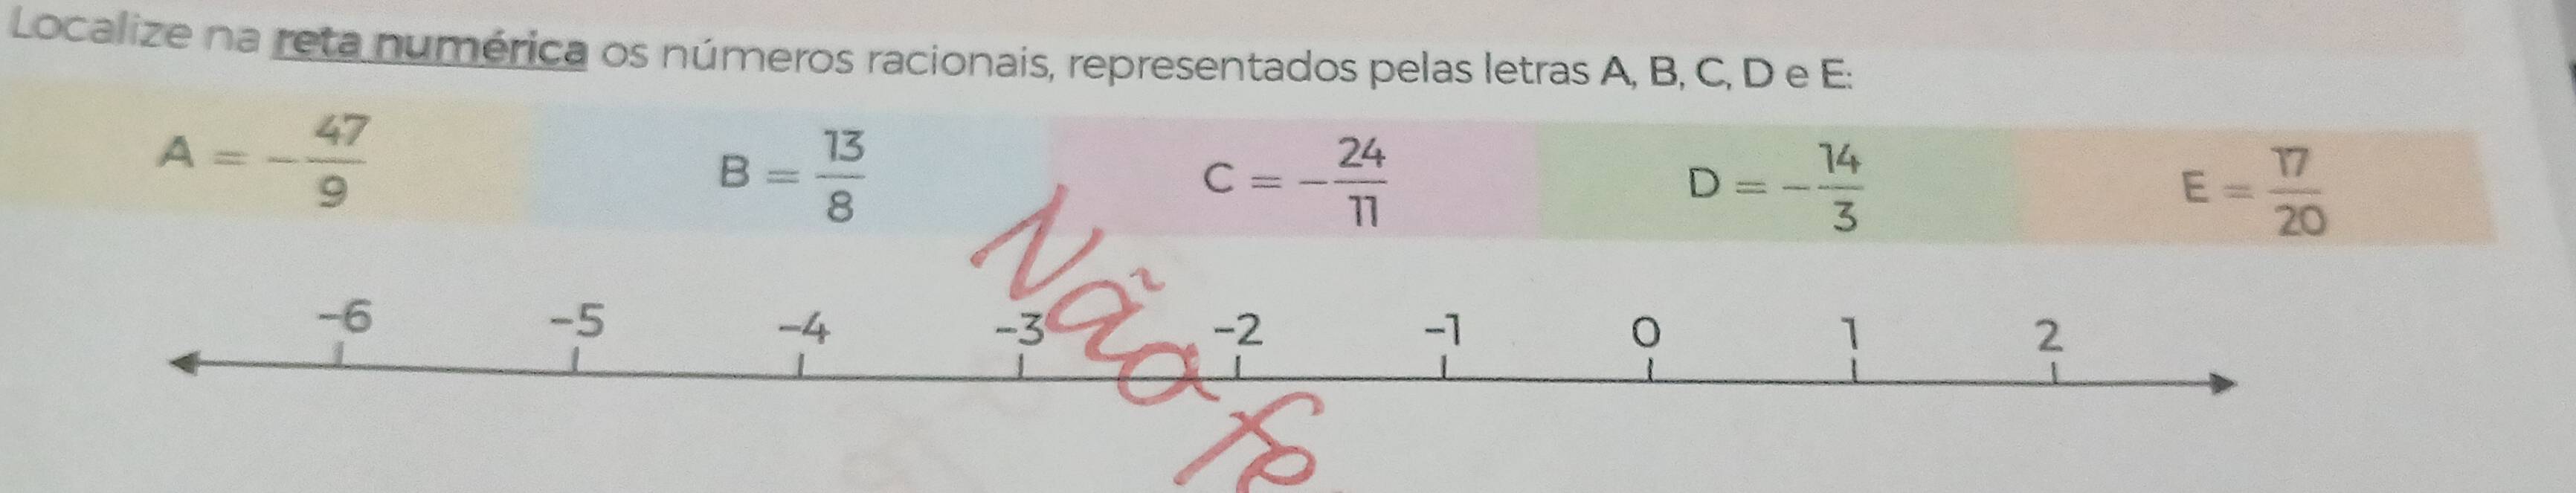 Localize na reta numérica os números racionais, representados pelas letras A, B, C, D e E:
A = -47/9 B = 13/8 C = -24/11 D = -14/3 E = 17/20
-6 -5 -4 -3 -2 -1 0 1 2
Não